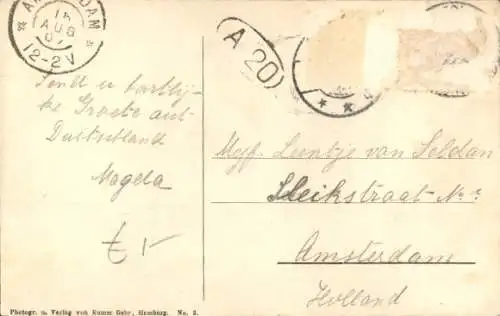 AMSTERDAM
15
AUG
07
12-2V
A 20
Send u hartlij-
ke Groete aut
Duitschland
Magda
Mejf. Leentje van Seldan
straat
Amsterdam
Holland
Photogr. u. Verlag von Kumm Gebr., Hamburg. No. 3.